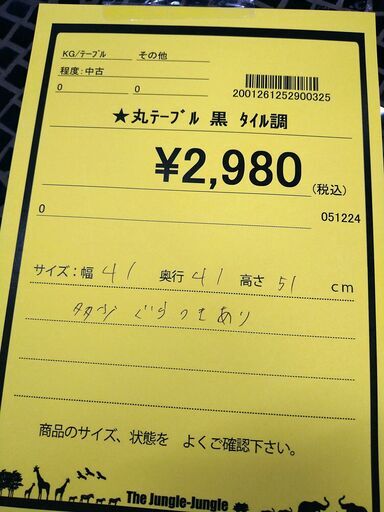 KG/ﾃｰﾌﾞﾙ その他
程度:中古
0 0
2001261252900325
★丸ﾃｰﾌﾞﾙ 黒 ﾀｲﾙ調
¥2,980
(税込)
0 051224
サイズ:幅 41 奥行 41 高さ 51 cm
ぐらつきあり
商品のサイズ、状態を よくご確認下さい。
The Jungle-Jungle